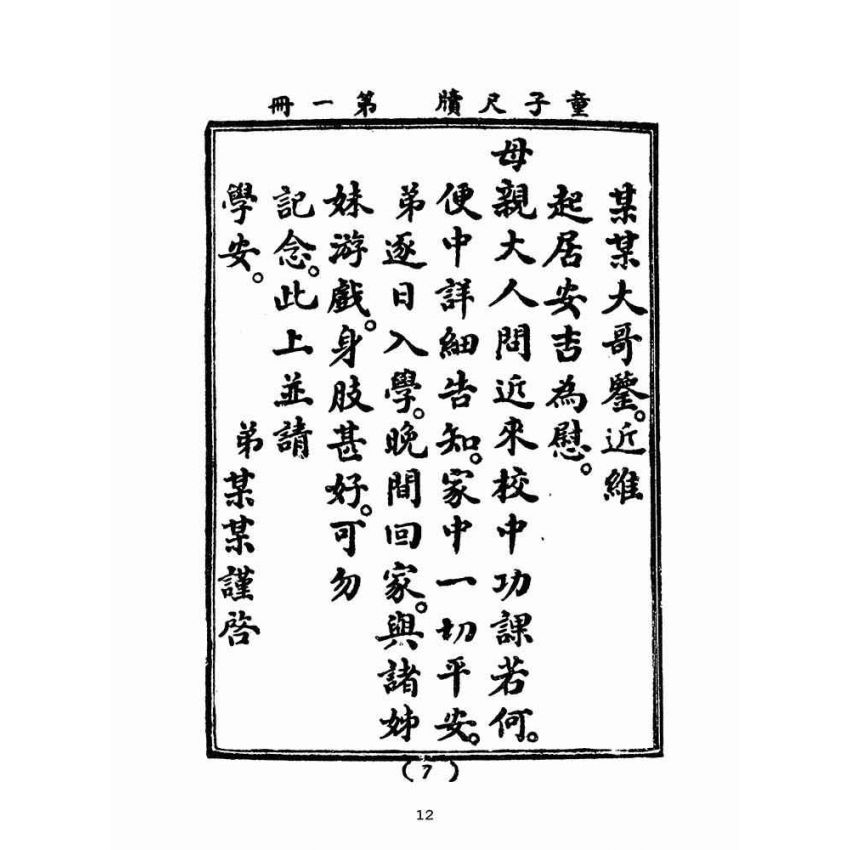 童子尺牘 第一冊
某某大哥鑒。近維
起居安吉為慰。
母親大人問近來校中功課若何。
便中詳細告知。家中一切平安。
弟逐日入學。晚間回家。與諸姊
妹游戲。身肢甚好。可勿
記念。此上並請
學安。 弟某某謹啓
(7)
12